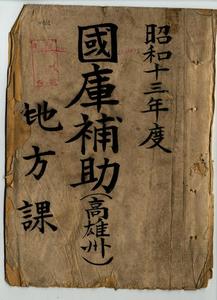 昭和十三年度
國庫補助(高雄州)
地方課